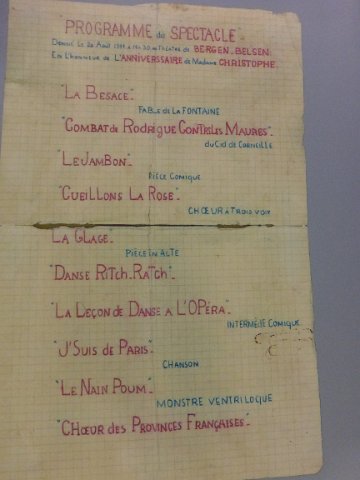 "PROGRAMME du SPECTACLE"
Donné le 20 Août 1944 à 14h.30 au théatre de BERGEN-BELSEN.
En l'honneur de L'ANNIVERSSAIRE de Madame CHRISTOPHE.
"LA BESACE"-
FABLE de LA FONTAINE
"COMBAT de RODRIGUE CONTRE LES MAURES"-
du Cid de CORNEILLE
"LE JAMBON"-
PIÈCE COMIQUE
"CUEILLONS LA ROSE"-
CHŒUR à TROIS VOIX
LA GLACE-
PIÈCE EN ACTE
"DANSE RITCH-RATCH"-
"LA LEÇON de DANSE A L'OPÉRA"-
INTERMÈDE COMIQUE
"J'SUIS DE PARIS"-
CHANSON
"LE NAIN POUM"-
MONSTRE VENTRILOQUE
"CHŒUR des PROVINCES FRANÇAISES"-